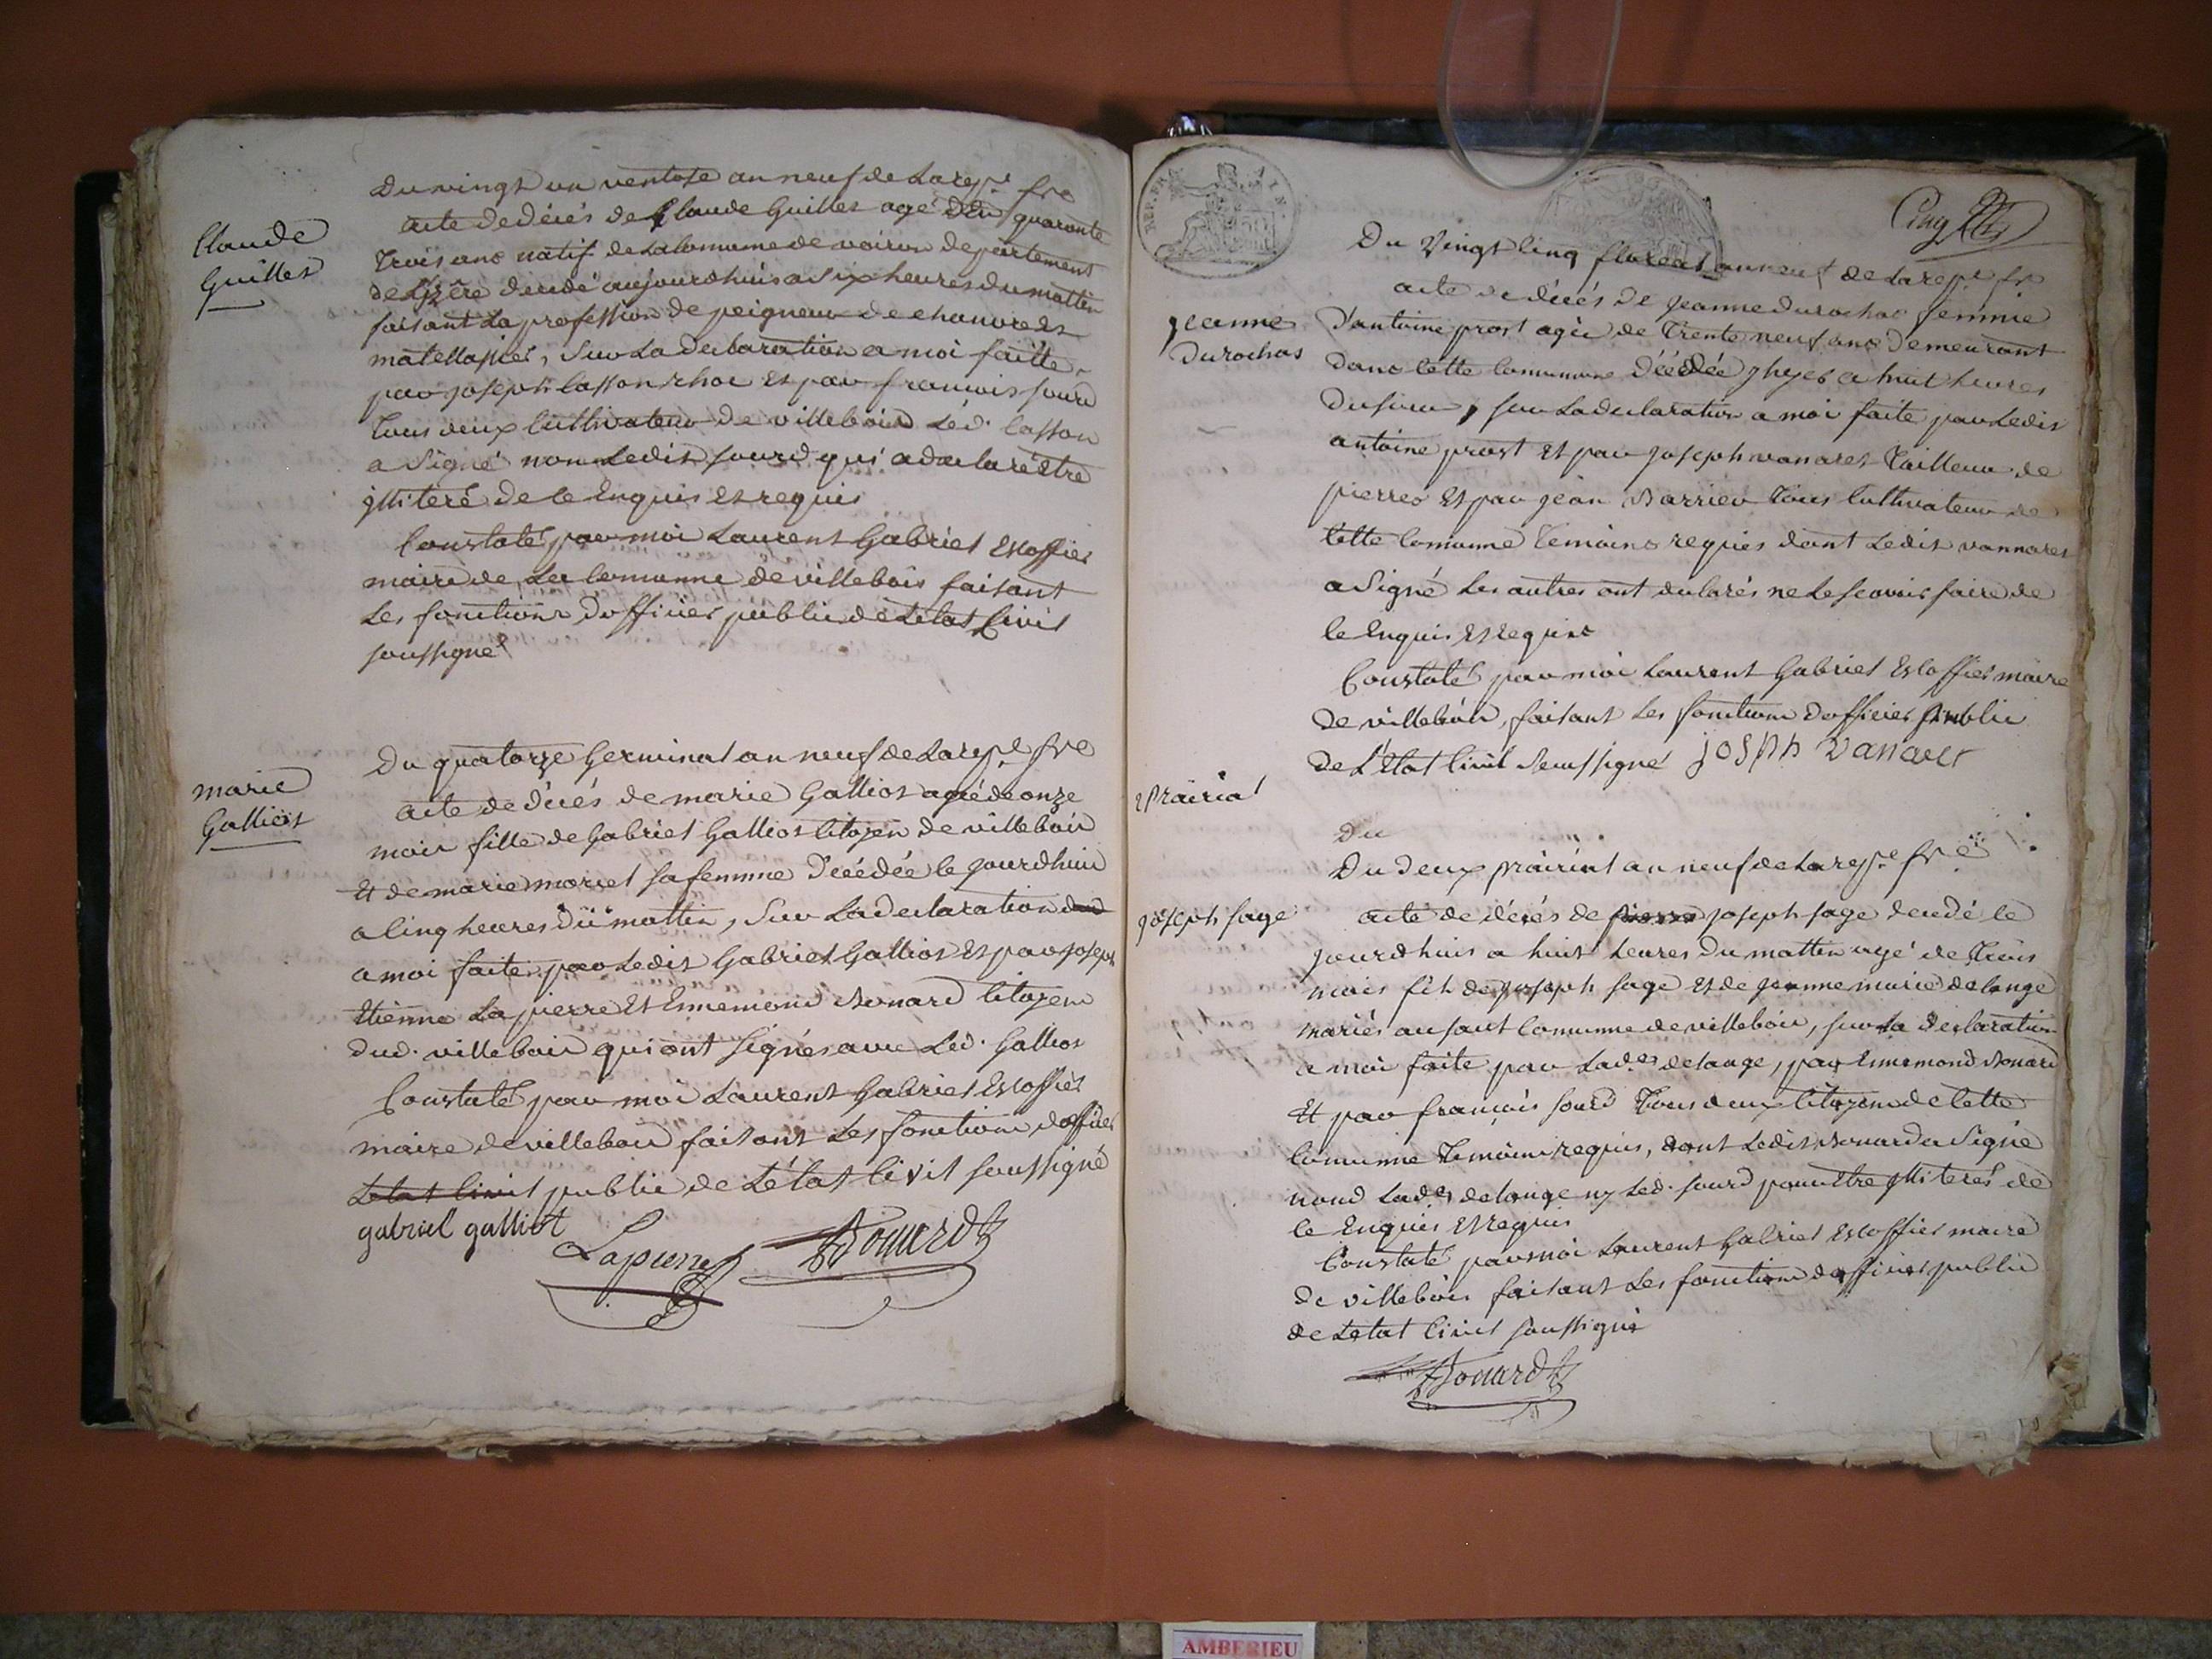 Du vingt un ventose an neuf de La rep.e fre
Claude
Guillet
acte de décés de Claude Guillet agé de quarante
trois ans natif de la Comune de voiron departement
de Lizère decedé aujourdhuis a six heures du mattin
faisant La profession de peigneur de chanvre et
matellassier, Sur La declaration a moi faitte
par joseph Casson et par francois sourd
tous deux Cultivateur de villebois Led. Casson
a Signé non Ledit sourd qui a declaré Etre
jlliteré de ce Enquis et requis
Constaté par moi Laurent Gabriel Escoffier
maire de La Comunne de villebois faisant
Les fonctions dofficier public de Létat Civil
soussigné
Du quatorze Germinal an neuf de La rep.e fre
marie
Galliot
acte de décés de marie Galliot agée de onze
mois fille de Gabriel Galliot Citoyen de villebois
Et de marie morel sa femme décédée ce jourdhuis
a Cinq heures du mattin, Sur La declaration
a moi faite par Ledit Gabriel Galliot Et par joseph
Etienne La pierre Et Ennemond Bonard Citoyens
dud. villebois qui ont Signés avec Led. Galliot
Constaté par moi Laurent Gabriel Escoffier
maire de villebois faisant Les fonctions doffiier
Letat Civil public de Létat Civil soussigné
gabriel galliot
Lapierre
Bonard
Cinq
Du Vingt Cinq floreal an neuf de La rep.e fre
jeanne
Durochas
acte de décés de jeanne durochas femme
d'antoine prost agée de trente neuf ans demeurant
dans Cette Commune décédée jhyer a huit heures
du soir, sur La declaration a moi faite par Ledit
antoine prost Et par joseph vanaret tailleur de
pierres Et par jean Barrier tous Cultivateur de
Cette Comunne temoins requis dont Ledit vannaret
a Signé Les autres ont declarés ne Le scavoir faire de
Ce Enquis Et requis
Constaté par moi Laurent Gabriel Escoffier maire
de villebois, faisant Les fonctions dofficier public
de L'Etat Civil Soussigné josph vanaret
Prairial
Du
Du deux prairial an neuf de La rep.e fre
joseph sage
acte de décés de pierre joseph sage decedé ce
jourdhuis a huit heures du mattin agé de trois
mois fils de joseph sage Et de jeanne marie delange
mariés au sout Comunne de villebois, sur La declaration
a moi faite par Lad.e delange, par Ennemond Bonard
Et par francois sourd tous deux Citoyens de Cette
Comunne temoins requis, dont Ledit Bonard a Signé
nond Lad.e delange ny Led. sourd pour Etre jlliterés de
Ce Enquis Et requis
Constaté par moi Laurent Gabriel Escoffier maire
de villebois faisant Les fonctions dofficier public
de Letat Civil soussigné
Bonard
AMBERIEU